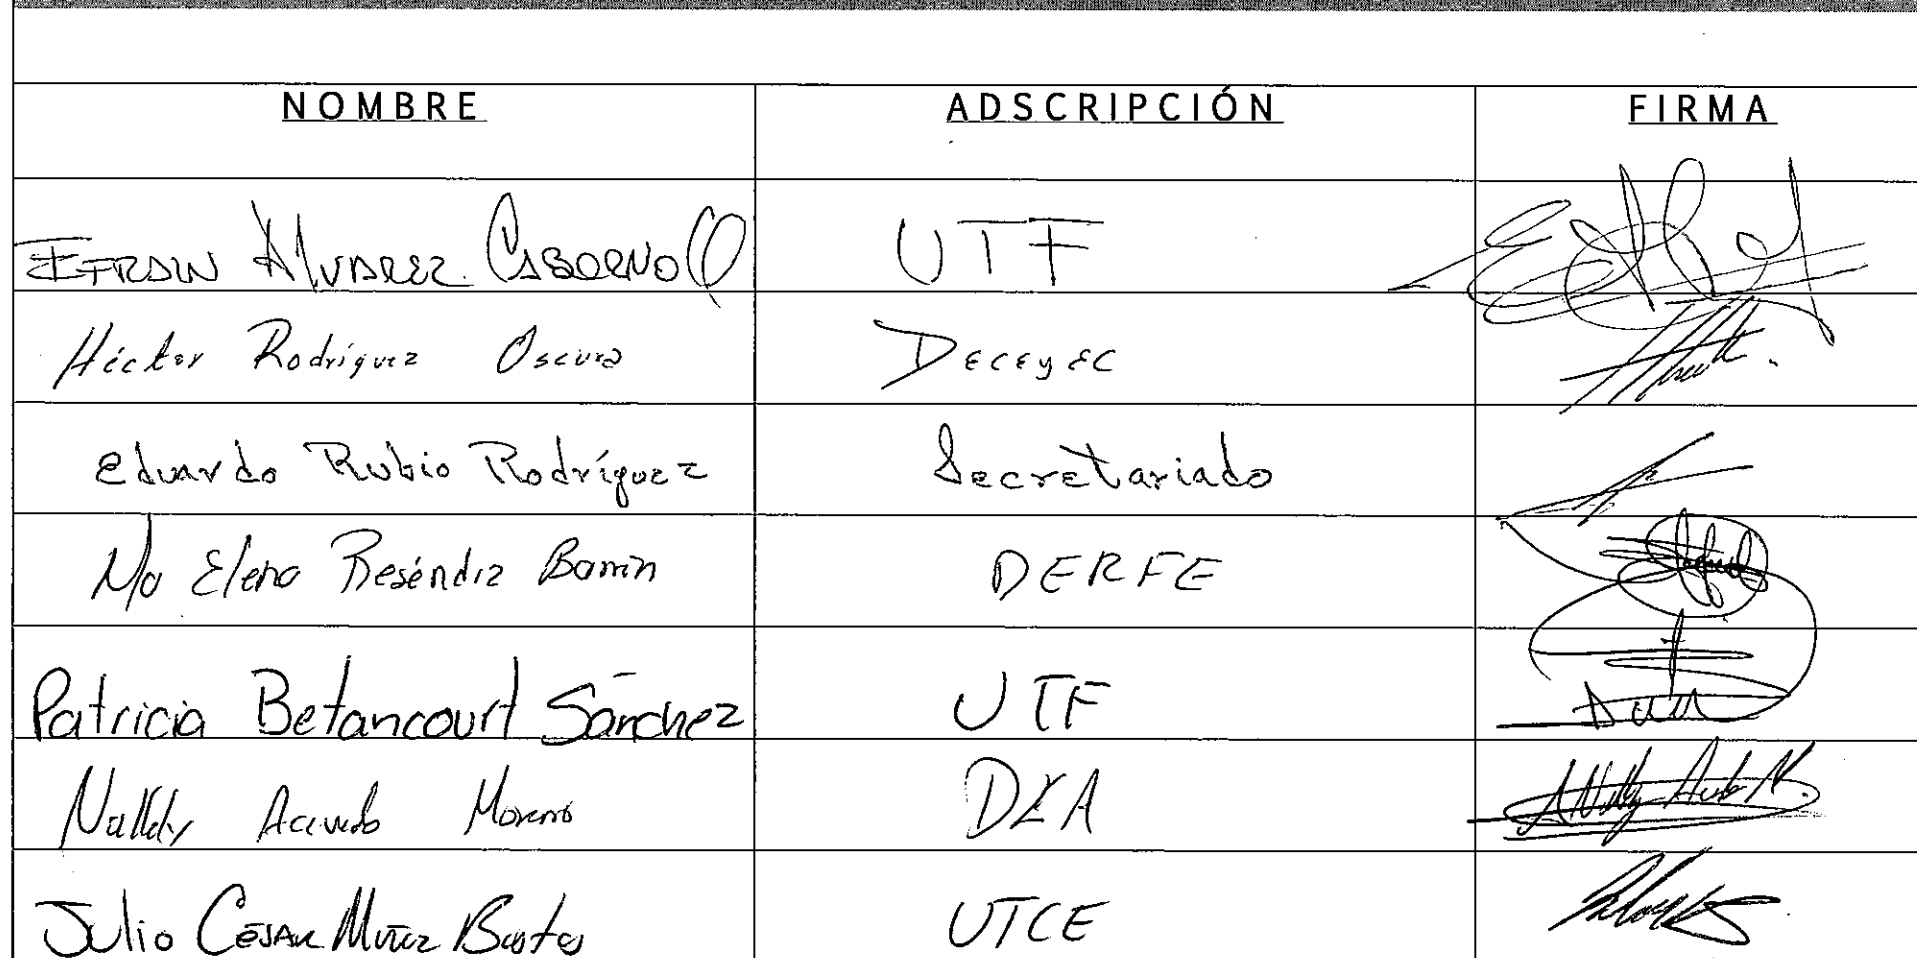 NOMBRE ADSCRIPCIÓN FIRMA
EFRAIN ALVAREZ UTF
Héctor Rodríguez Oscura DECEyEC
Eduardo Rubio Rodríguez Secretariado
Ma Elena Reséndiz DERFE
Patricia Betancourt Sánchez UTF
Acevedo Moreno DEA
Julio César Muñoz UTCE